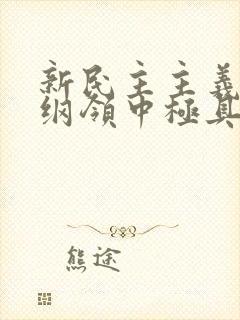 新民主主義
綱領中極具
熊途